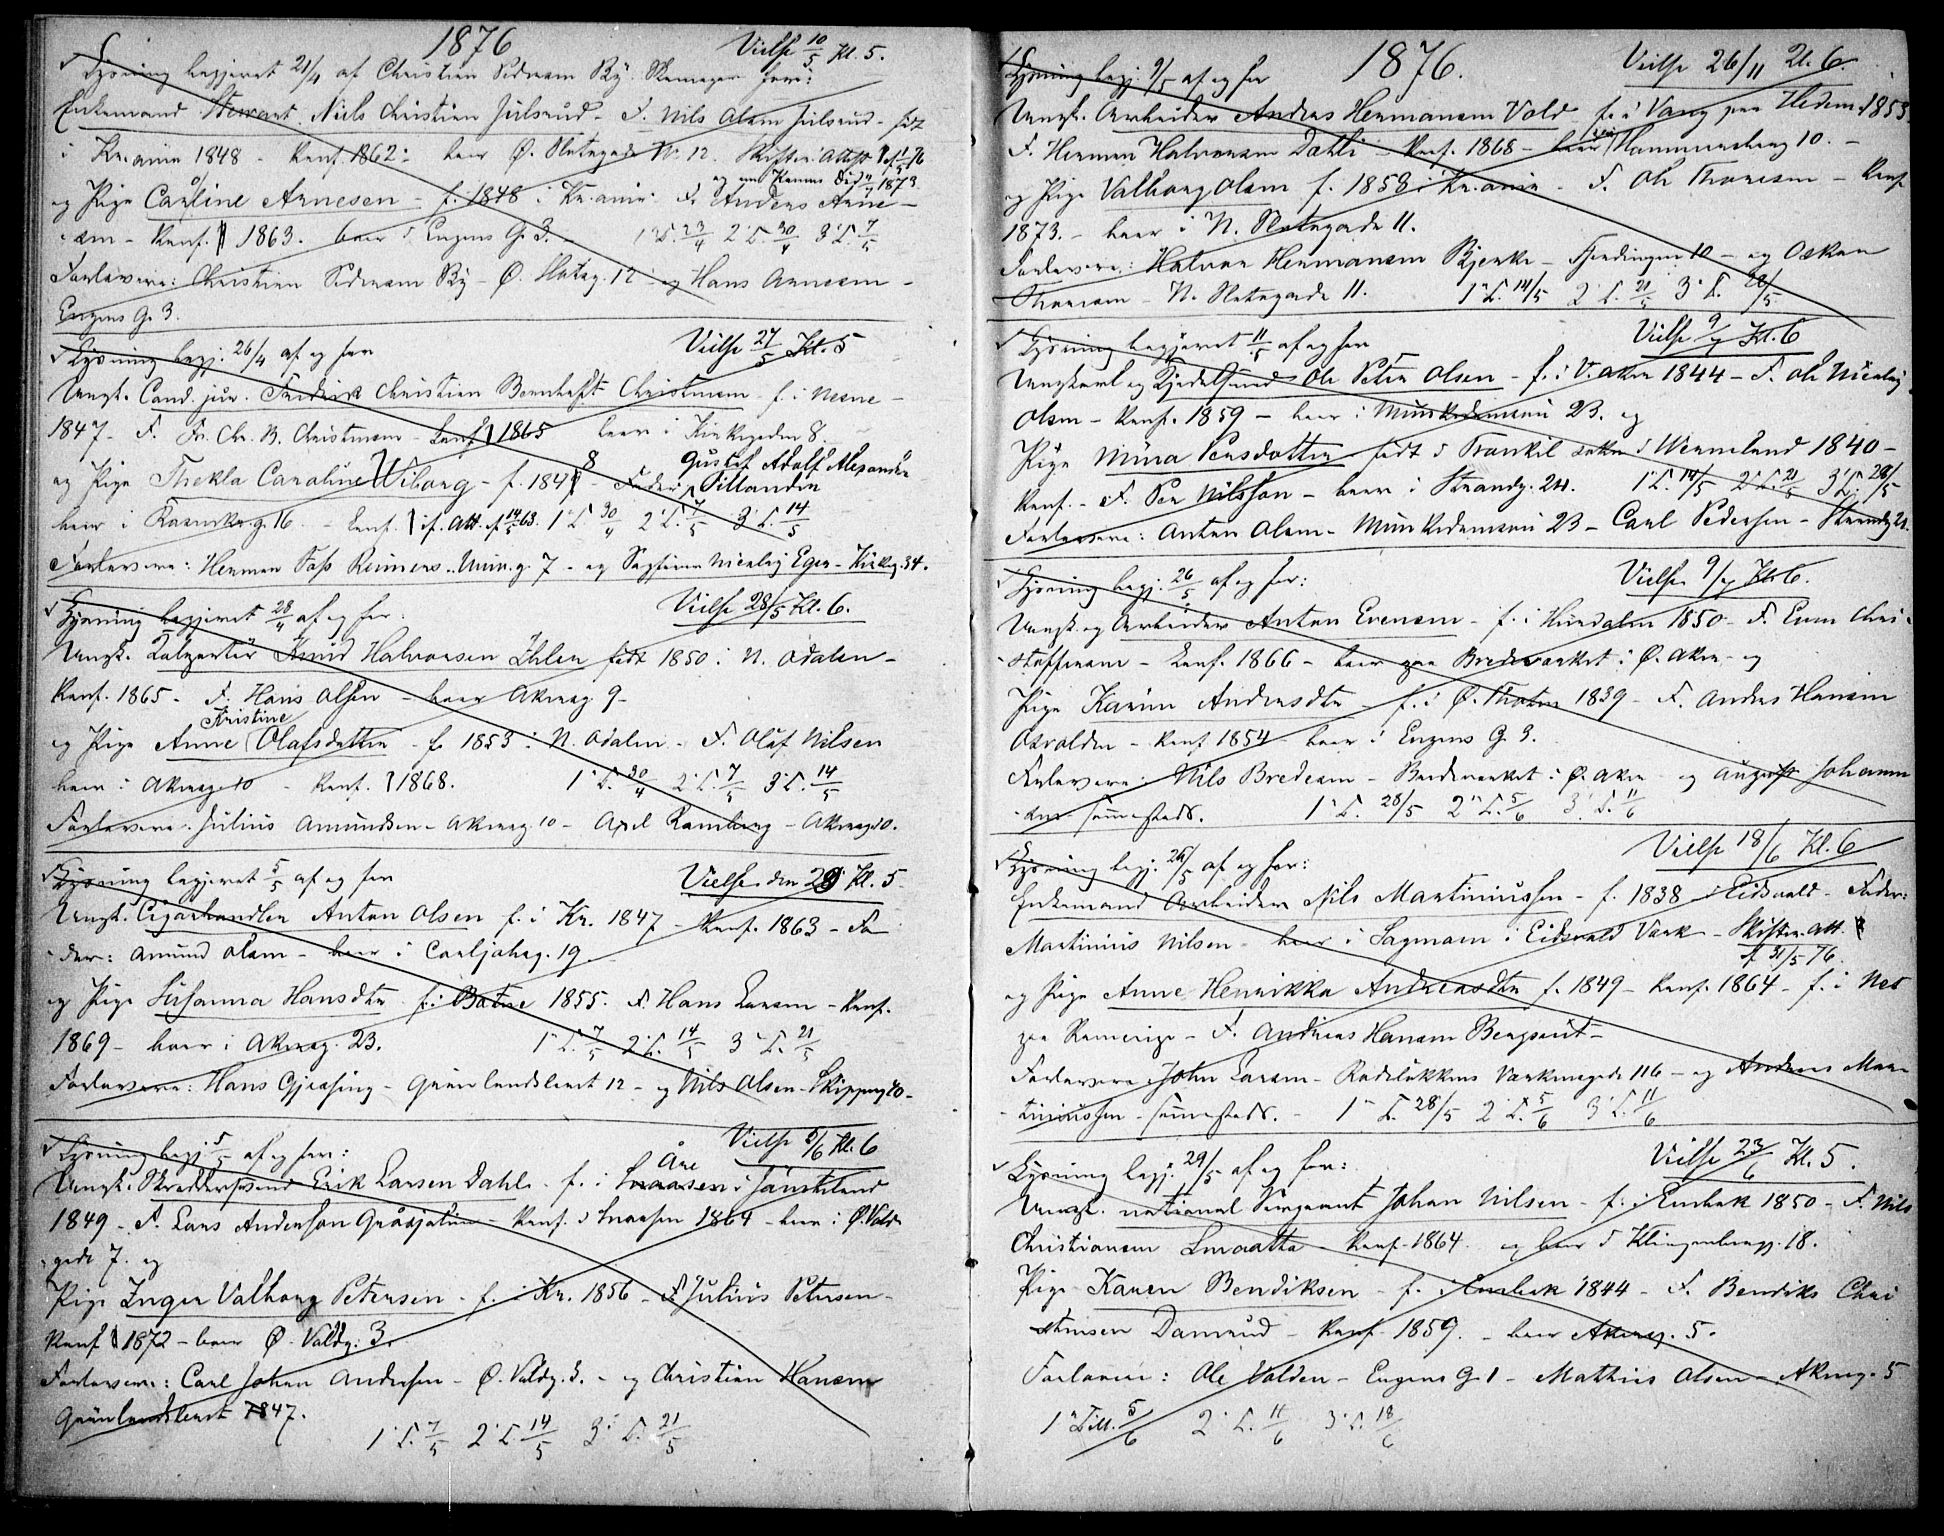 1876
Vielse 10/5 Kl. 5.
Lysning begjæret 21/4 af Christian Pedersen By. Skomager for:
Enkemand Niels Christian Julsrud - F. Nils Olsen Julsrud - født
i Kr.ania 1848 - Konf. 1862 - boer Ø. Slotsgade No 12. Skifte Attest
og Pige Carline Arnesen - f. 1848 i Kr.ania - F. Anders Arne-
sen - Konf. 1863. boer i Enggens G. 3. 1 L. 23/4 2 L. 30/4 3 L. 7/5
Forlovere: Christian Pedersen By - Ø. Slotsg. 12 - og Hans Arnesen -
Enggens G. 3.
Lysning begj. 26/4 af og for
Vielse 27/5 Kl. 5
Ungk. Cand. jur. Fredrik Christian Bernhoft Christensen - f. i Nesne -
1847 - F. Fr. Chr. B. Christensen - Konf. 1865 boer i Kirkegaden 8.
og Pige Thekla Caroline Wiborg - f. 1848 - Fader Gustaf Adolf Alexander
boer i 16. - Konf. if. Att. 14/5 63. 1 L. 30/4 2 L. 7/5 3 L. 14/5
Forlovere: Herman Foss Reimers - Univ.g. 7 - og Nicolay Eger - Kirkeg. 34.
Lysning begjæret 28/4 af og for.
Vielse 28/5 Kl. 6.
Ungk. Knud Halvorsen Ihlen født 1850 i N. Odalen -
Konf. 1865 - F. Hans Olsen - boer Akersg. 9 -
og Pige Anne Kristine Olafsdatter - f. 1853 i N. Odalen - F. Olaf Nilsen
boer i Akersg. 10 - Konf. 1868. 1 L. 30/4 2 L. 7/5 3 L. 14/5
Forlovere: Julius Amundsen - Akersg. 10 - Axel Ramberg - Akersg. 10.
Lysning begjæret 5/5 af og for
Vielse den 29 Kl. 5.
Ungk. Cigarhandler Anton Olsen f. i Kr. 1847 - Konf. 1863 - Fa-
der: Amund Olsen - boer i Carljohsg. 19.
og Pige Susanna Hansdtr f. i Botne 1855. F. Hans Larsen - Konf.
1869 - boer i Akersg. 23. 1 L. 7/5 2 L. 14/5 3 L. 21/5
Forlovere: Hans Gjæsing - Grønlandsleret 12 - og Nils Olsen - Skipperg. 20 -
Lysning begj. 5/5 af og for:
Vielse 5/6 Kl. 6
Ungk. Skræddersvend Erik Larsen Dahl - f. i Åre i Jämtland
1849 - F. Lars Anderson - Konf. i Snaasen 1864 - boer i Ø. Vold-
gade 7. og
Pige Inger Valborg Petersen - f. i Kr. 1856 - F. Julius Petersen -
Konf. 1872 - boer Ø. Voldg. 3.
Forlovere: Carl Johan Andersen - Ø. Voldg. 3. - og Christian Hansen
Grønlandsleret 47.
1 L. 7/5 2 L. 14/5 3 L. 21/5
1876.
Lysning begj. 9/5 af og for
Vielse 26/11 Kl. 6.
Ungk. Arbeider Andreas Hermansen Vold - f. i Vang paa Hedem. 1853.
F. Herman Halvorsen Dahli - Konf. 1868 - boer Hammersborg 10. -
og Pige Valborg Olsen f. 1858 i Kr.ania - F. Ole Thoresen - Konf.
1873. - boer i N. Slotsgade 11.
Forlovere: Halvor Hermansen Bjerke - Fjerdingen 10 - og Oskar
Thoresen - N. Slotsgade 11. 1 L. 14/5 2 L. 21/5 3 L. 28/5
Lysning begjæret 11/5 af og for
Vielse 9/7 Kl. 6
Ungkarl og Ole Peter Olsen - f. i V. Aker 1844 - F. Ole Nicolay
Olsen - Konf. 1859 - boer i Munkedamsvei 23. og
Pige Mina Persdotter født i Trankil sokn i Wermland 1840 -
Konf. - F. Per Nilsson - boer i Strandg. 24. 1 L. 14/5 2 L. 21/5 3 L. 28/5
Forlovere: Anton Olsen - Munkedamsvei 23 - Carl Pedersen - Strandg.
Lysning begj. 26/5 af og for:
Vielse 9/7 Kl. 6.
Ungk. og Arbeider Anton Evensen - f. i 1850 - F. Even Chri-
stoffersen - Konf. 1866 - boer paa Bredeværket i Ø. Aker - og
Pige Karine Andersdtr - f. i Ø. Thoten 1839 - F. Anders Hansen
Osvolden - Konf. 1854 - boer i Enggens G. 3.
Forlovere: Nils Bredesen - i Ø. Aker og August Johann-
sen sammesteds. 1 L. 28/5 2 L. 5/6 3 L. 11/6
Lysning begj. 26/5 af og for:
Vielse 18/6 Kl. 6
Enkemand Arbeider Nils Martiniussen - f. 1838 i Eidsvold - Fader:
Martinius Nilsen - boer i Sagmoen i Eidsvold Værk - Skifte Att.
f. 31/5 76.
og Pige Anne Henrikke Andreasdtr f. 1849 - Konf. 1864 - f. i Nes
paa Romerige - F. Andreas Hansen
Forlovere: John Larsen - Rodeløkkens Værksmgade 116 - og Anders Mar-
tiniussen - sammesteds. - 1 L. 28/5 2 L. 5/6 3 L. 11/6
Lysning begj. 29/5 af og for:
Vielse 23/6 Kl. 5.
Ungk. national Sergeant Johan Nilsen - f. i Enebak 1850 - F. Nils
Christiansen - Konf. 1864 og boer i Klingenbergg. 18.
Pige Karen Bendiksen - f. i Enebak 1844 - F. Bendiks Chri-
stensen Damrud - Konf. 1859. - boer Akersg. 5.
Forlovere: Ole Volden - Enggens G. 1 - Mathis Olsen - Akersg. 5
1 Till. 5/6 2 L. 11/6 3 L. 18/6